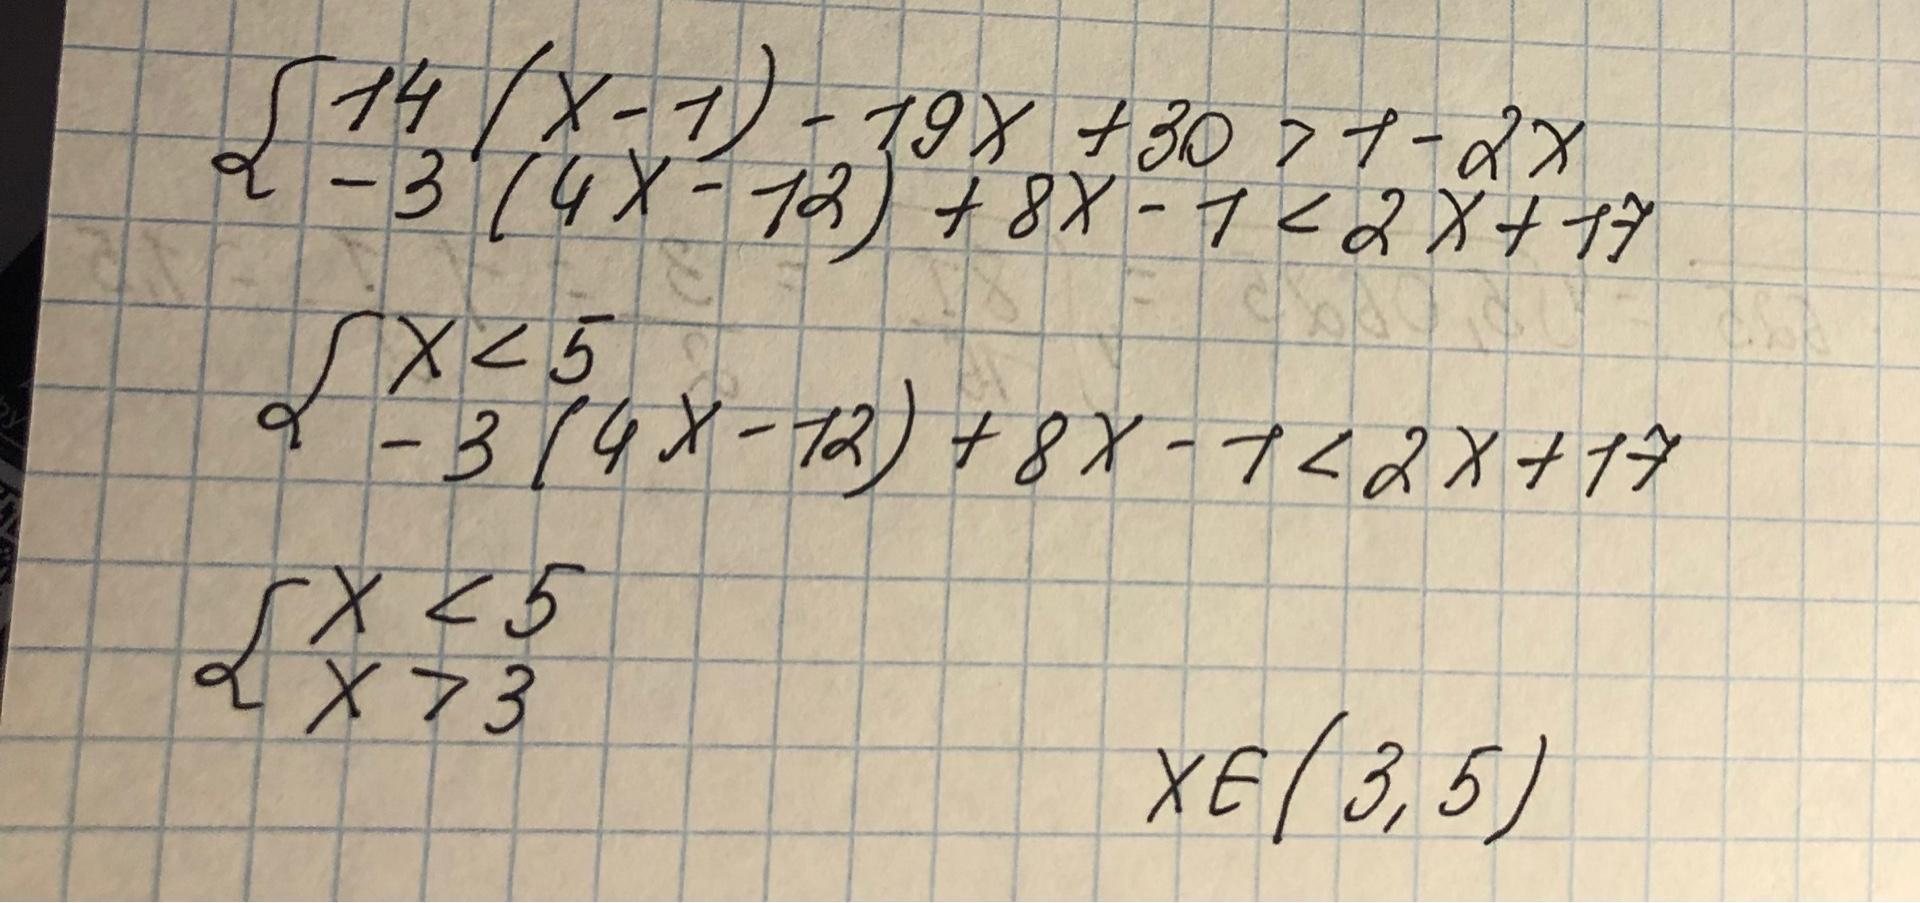 { 14 (x-1) - 19x + 30 > 1 - 2x
- 3 (4x - 12) + 8x - 1 < 2x + 17
{ x < 5
- 3 (4x - 12) + 8x - 1 < 2x + 17
{ x < 5
x > 3
x ∈ (3, 5)